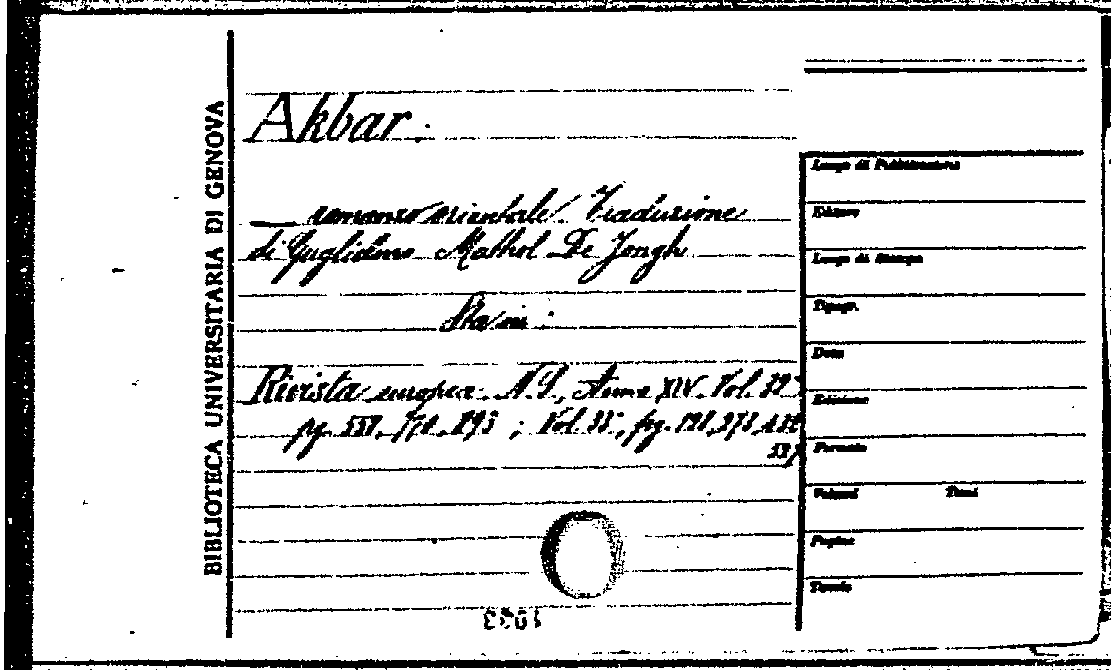 BIBLIOTECA UNIVERSITARIA DI GENOVA
Akbar.
— romanzo orientale. Traduzione
di Guglielmo Mathol De Jongh
Sta in:
Rivista europea. N.S., Anno XIV. Vol.
pg. ; Vol. 33, pg.
Luogo di Pubblicazione
Editore
Luogo di Stampa
Tipogr.
Data
Edizione
Formato
Volumi Tomi
Pagine
Tavole